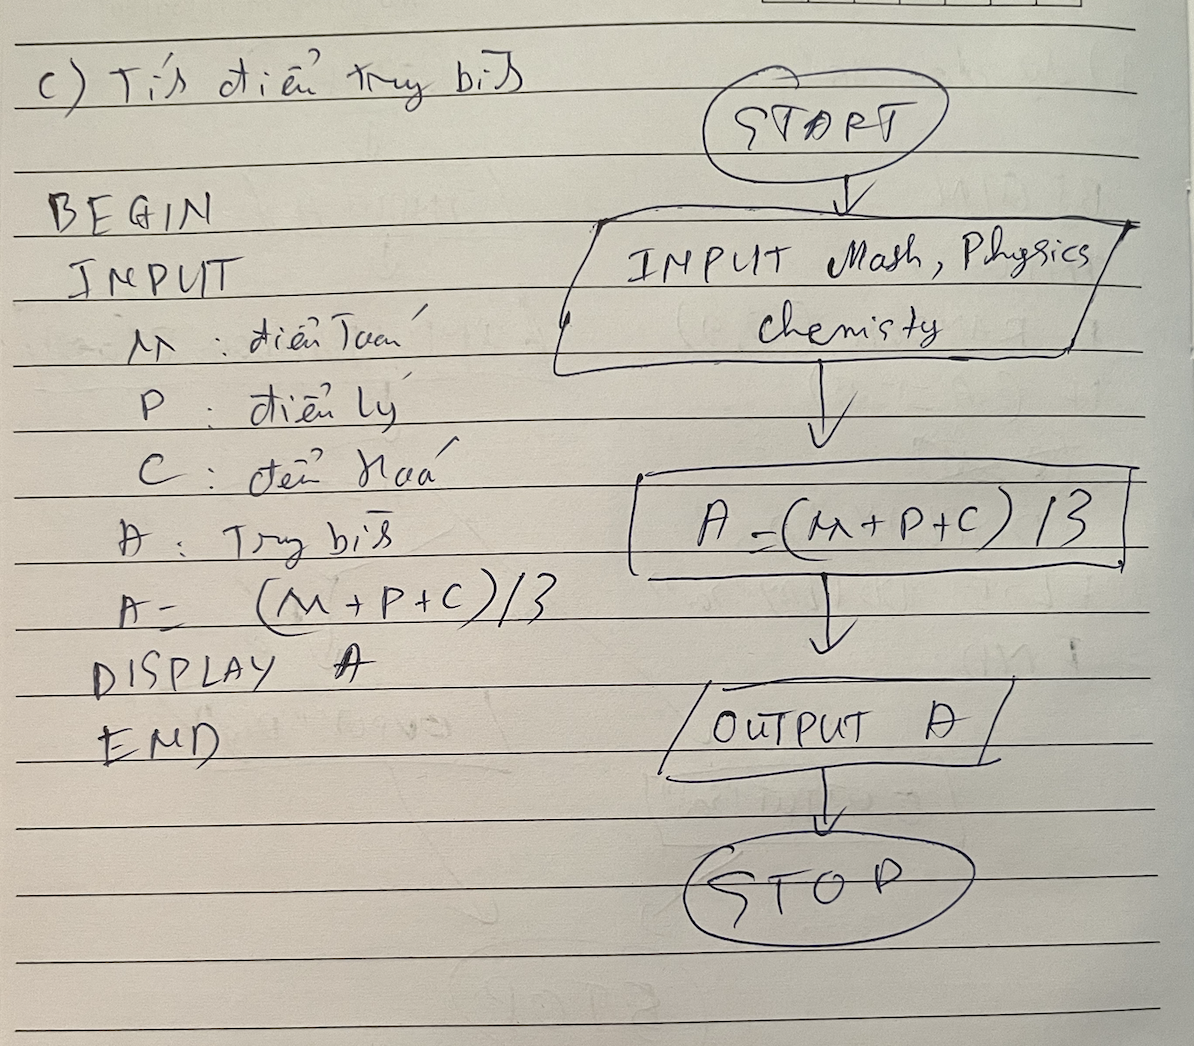 c) Tính điểm trung bình
BEGIN
INPUT
M : điểm Toán
P : điểm Lý
C : điểm Hoá
A : Trung bình
A = (M + P + C) / 3
DISPLAY A
END
START
INPUT Math, Physics
Chemisty
A = (M + P + C) / 3
OUTPUT A
STOP